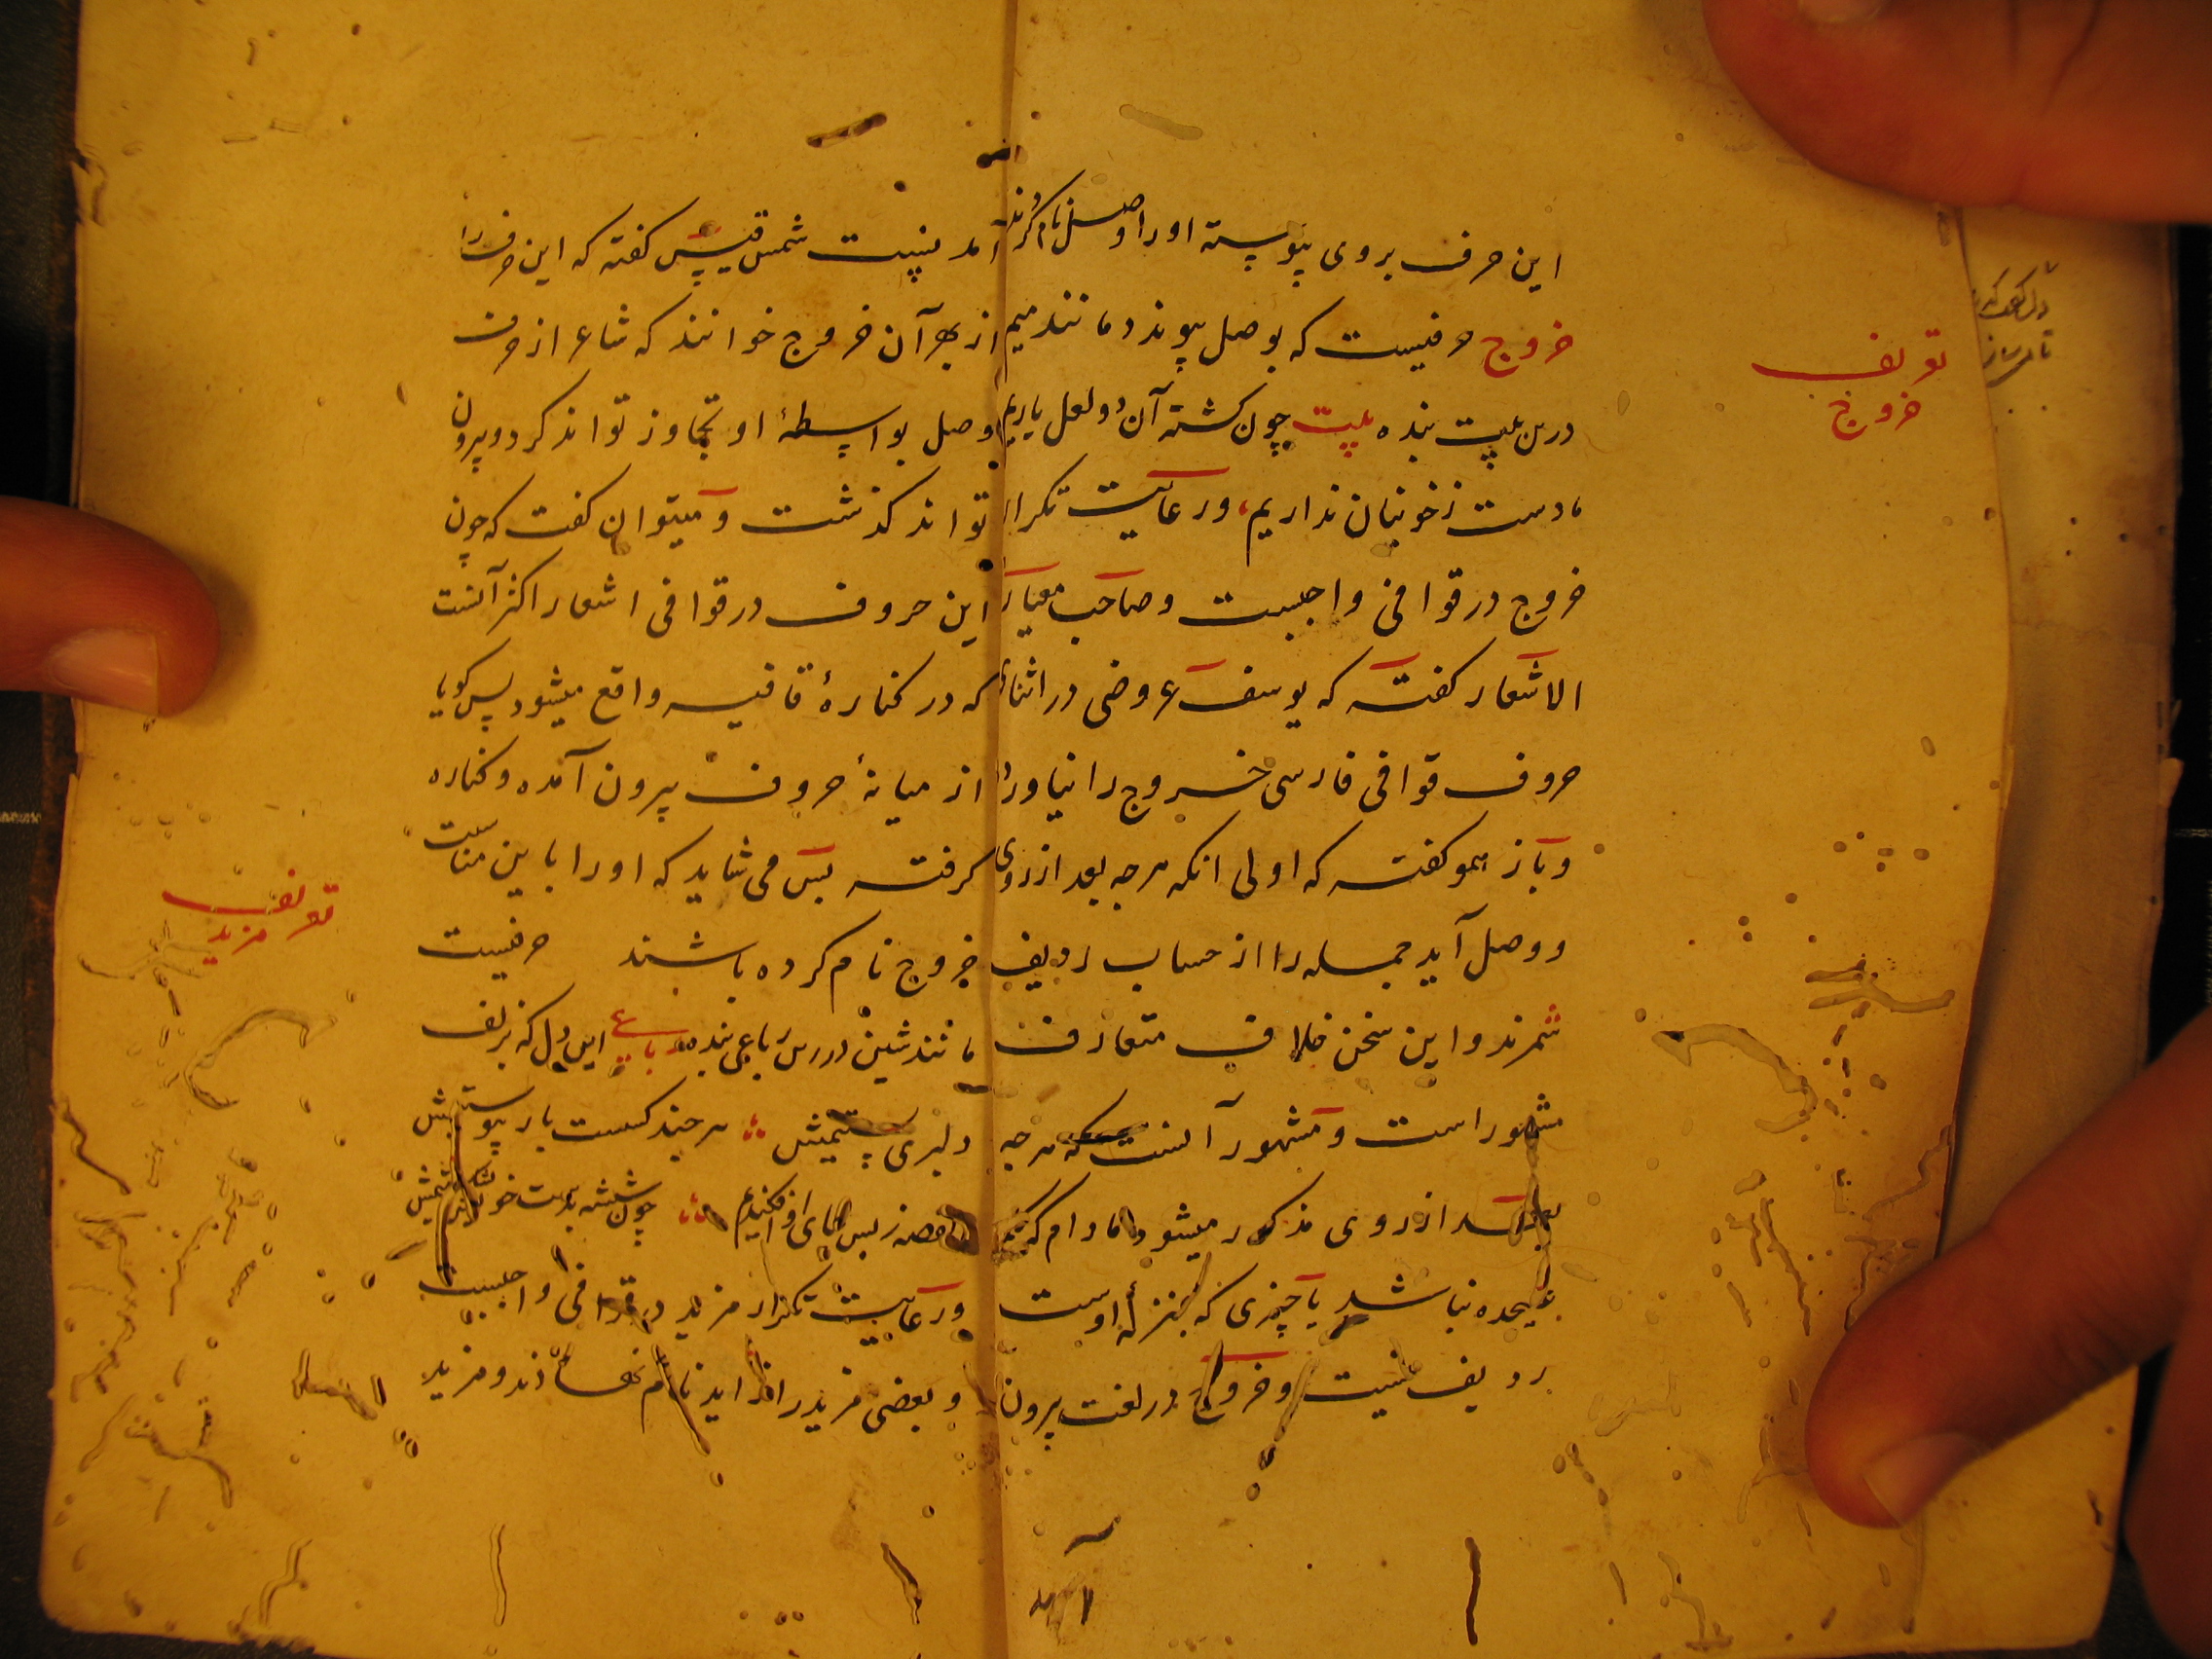 این حرف بروی پیوسته او را وصل نام کردند
خروج حرفیست که بوصل پیوندد مانند میم
درین بیت بنده بیت چون کشته آن دو لعل یاریم
ما دست ز خونیان نداریم، و رعایت تکرار
خروج در قوافی واجبست و صاحب معیار
الاشعار کفته که یوسف عروضی در اثنای
حروف قوافی فارسی خروج را نیاورده
و باز همو کفته که اولی انکه هرچه بعد از روی
و وصل آید جمله را از حساب ردیف
شمرند و این سخن خلاف متعارف
مشهور است و مشهور آنست که هرچه
بعد از روی مذکور میشود مادام که
علیحده نباشد یا چیزی که بمنزلهٔ اوست
ردیف نیست و خروج در لغت بیرون
تعریف
خروج
آمدنیست شمس قیس کفته که این حرف را
از بهر آن خروج خوانند که شاعر از حرف
وصل بواسطهٔ او تجاوز تواند کرد و بیرون
تواند کذشت و میتوان کفت که چون
این حروف در قوافی اشعار اکثر آنست
که در کنارهٔ قافیه واقع میشود پس کویا
از میانهٔ حروف بیرون آمده و کناره
کرفته پس می شاید که او را باین مناسبت
خروج نام کرده باشند حرفیست
مانند شین درین رباعی بنده رباعی این دل که بزلف
دلبری بستیمش هر چند کسست باز پیوستیمش
القصه ز بس در پای او افکندیم چون شیشه بدست خود شکستیمش
و رعایت تکرار مزید در قوافی واجبست
و بعضی مزید را زاید نام نهاده‌اند و مزید
تعریف
مزید